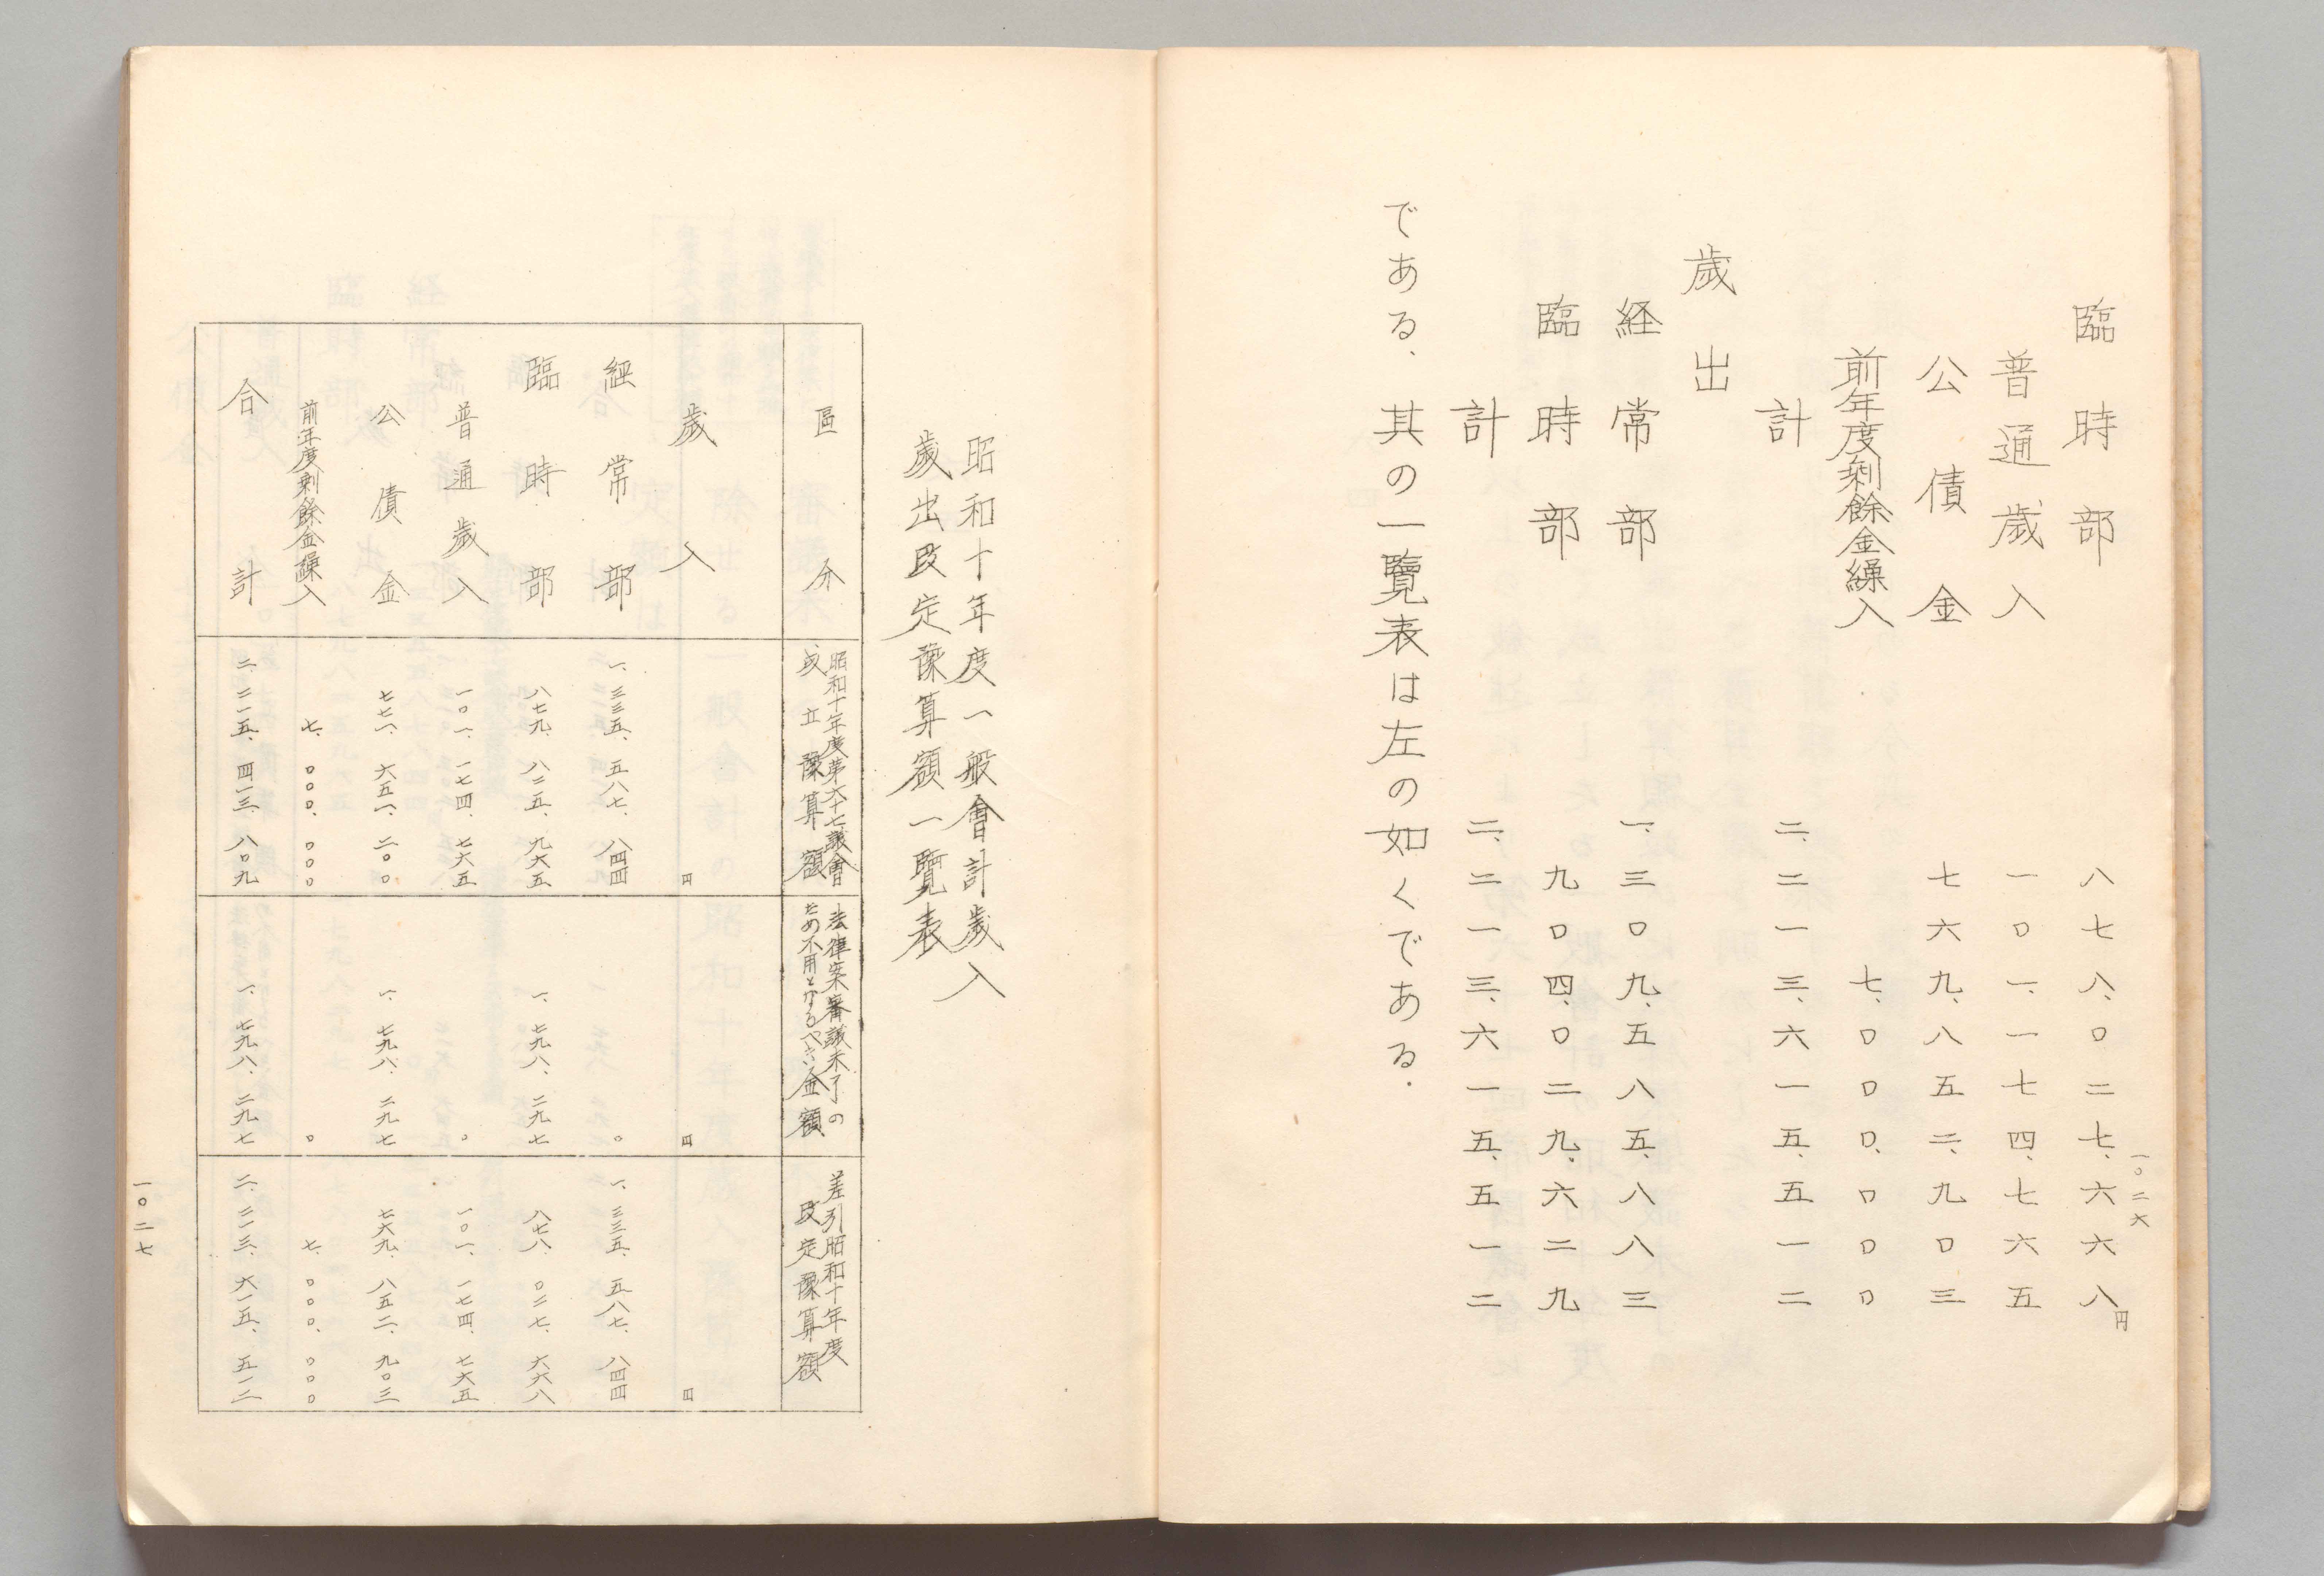 一〇二六
臨時部 八七八、〇二七、六六八円
普通歳入 一〇一、一七四、七六五
公債金 七六九、八五二、九〇三
前年度剰餘金繰入 七、〇〇〇、〇〇〇
計 二、二一三、六一五、五一二
歳出
経常部 一、三〇九、五八五、八八三
臨時部 九〇四、〇二九、六二九
計 二、二一三、六一五、五一二
である、其の一覽表は左の如くである.
昭和十年度一般會計歳入
歳出改定豫算額一覽表
區分
昭和十年度第六十七議會
成立豫算額
法律案審議未了の
ため不用となるべき金額
差引昭和十年度
改定豫算額
歳入 円 円 円
経常部 一、三三五、五八七、八四四 〇 一、三三五、五八七、八四四
臨時部 八七九、八二五、九六五 一、七九八、二九七 八七八、〇二七、六六八
普通歳入 一〇一、一七四、七六五 〇 一〇一、一七四、七六五
公債金 七七一、六五一、二〇〇 一、七九八、二九七 七六九、八五二、九〇三
前年度剰餘金繰入 七、〇〇〇、〇〇〇 〇 七、〇〇〇、〇〇〇
合計 二、二一五、四一三、八〇九 一、七九八、二九七 二、二一三、六一五、五一二
一〇二七